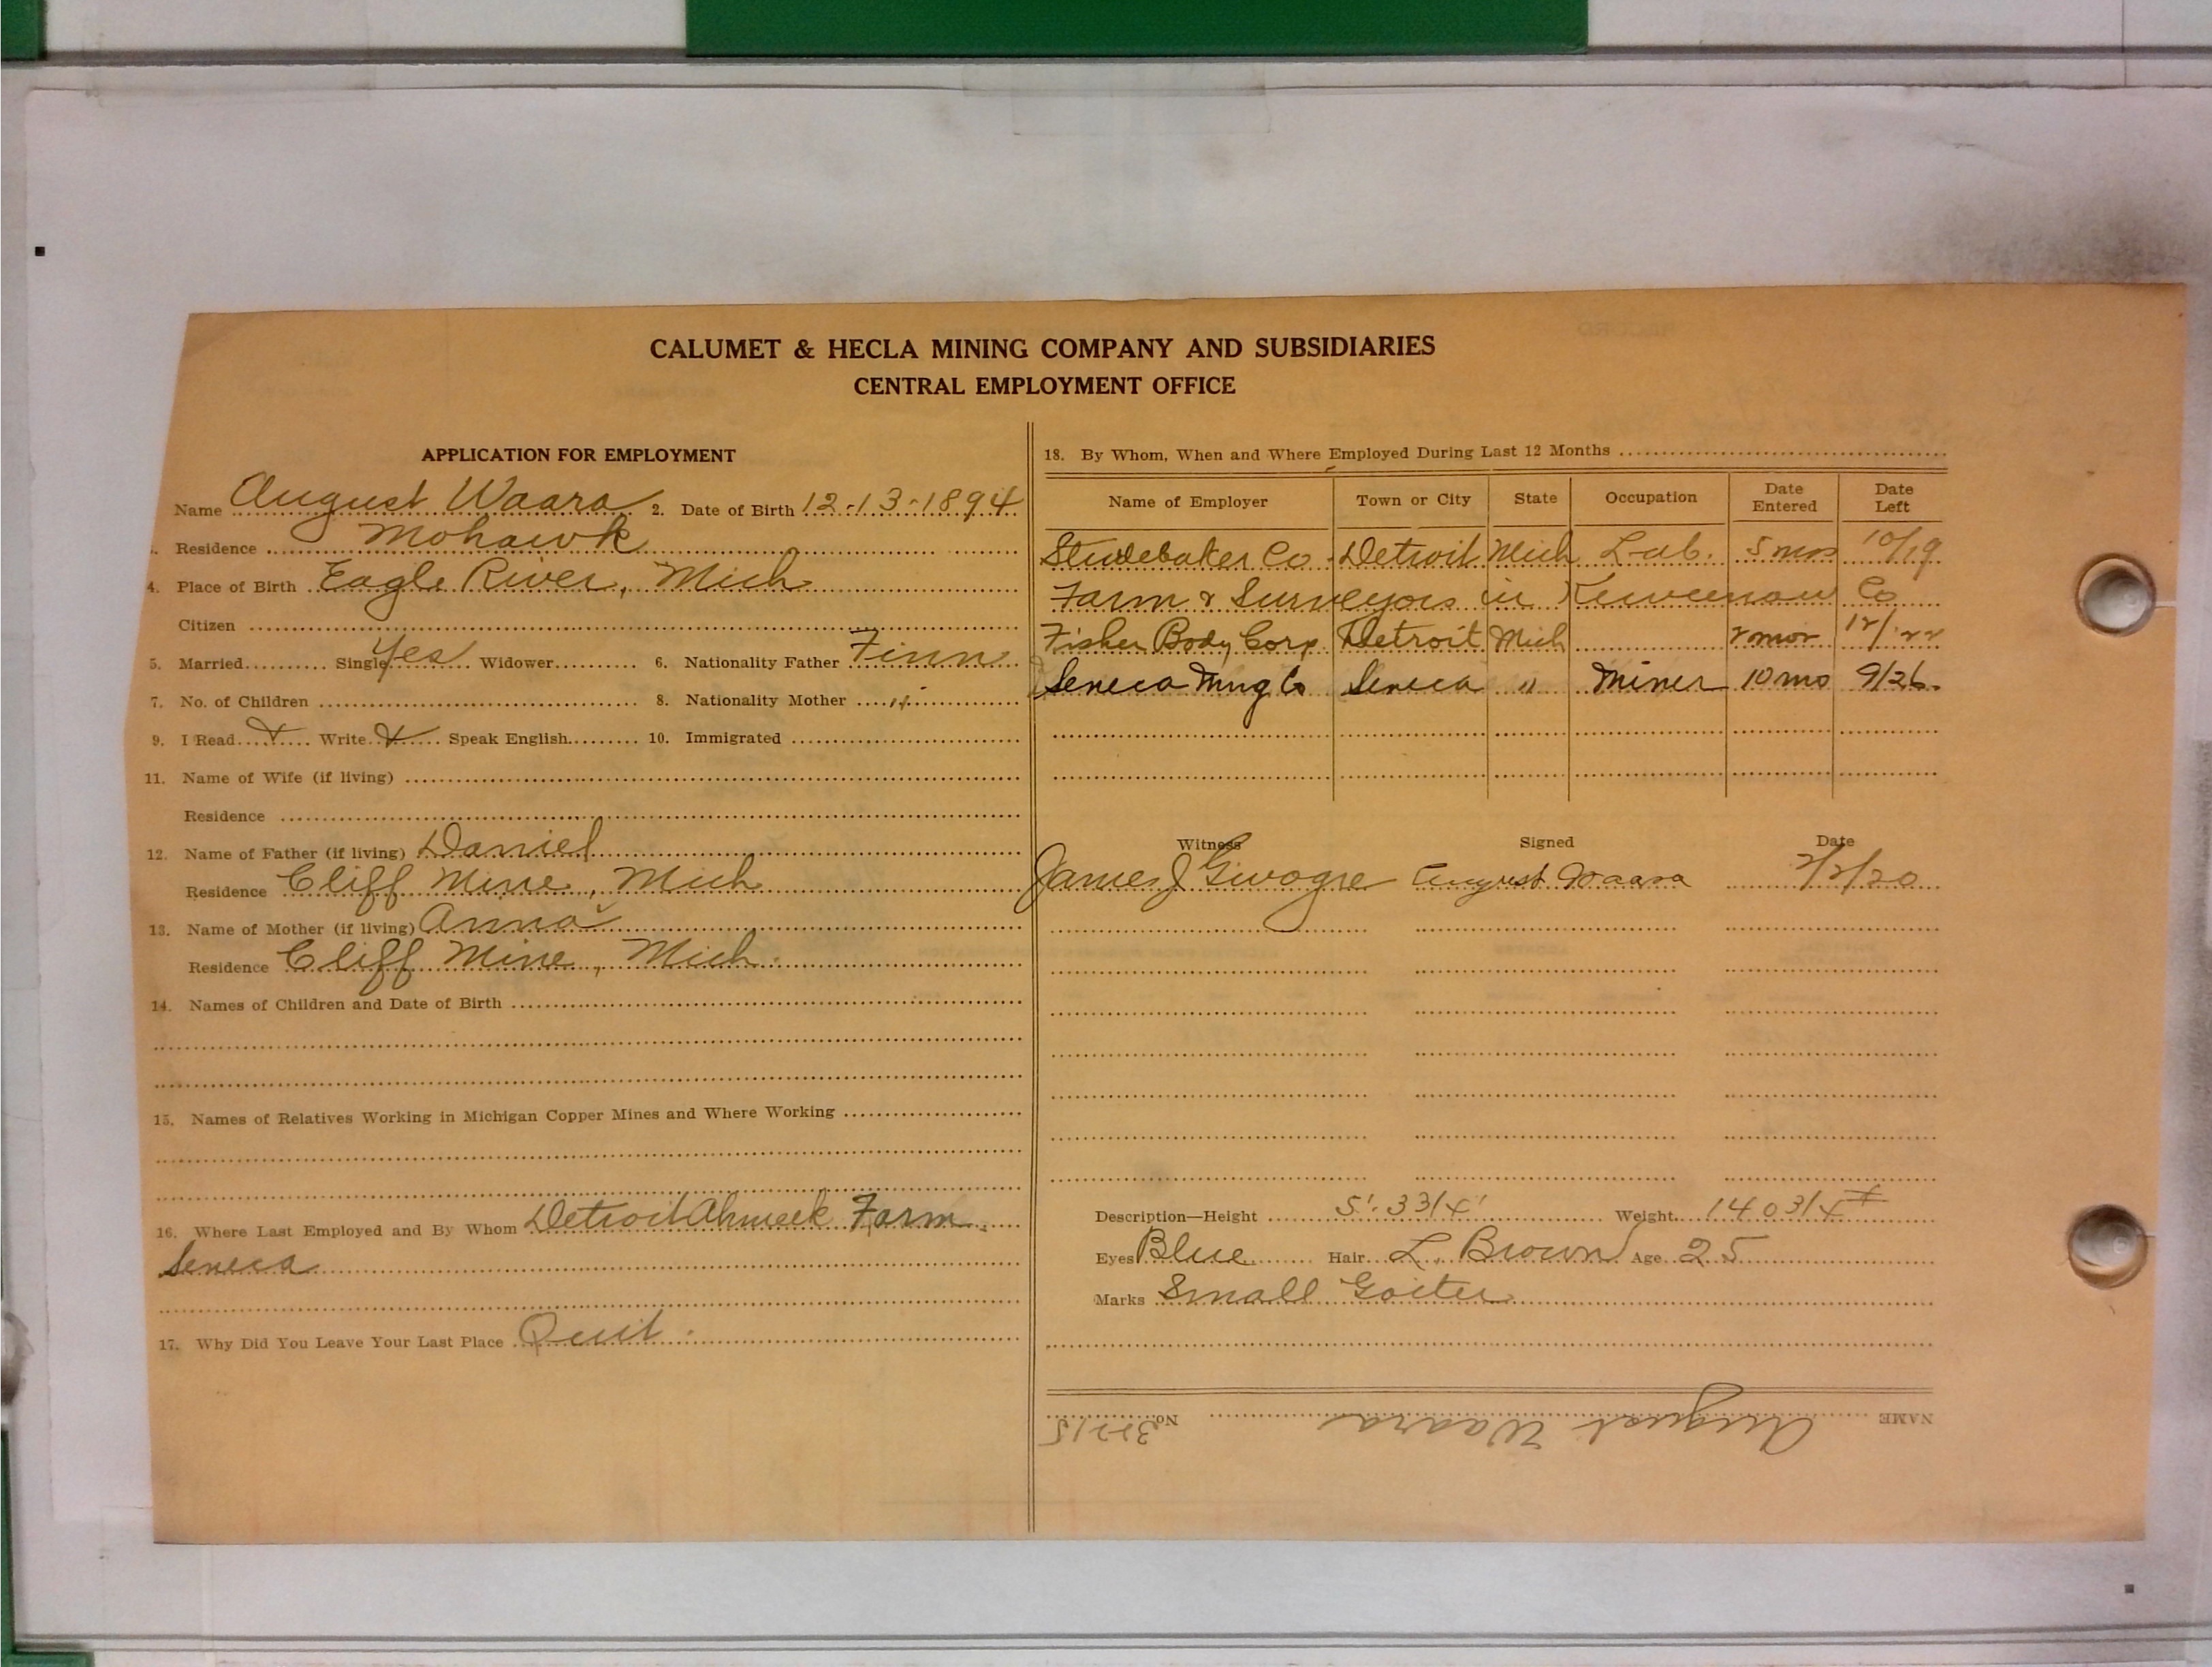 CALUMET & HECLA MINING COMPANY AND SUBSIDIARIES
CENTRAL EMPLOYMENT OFFICE
APPLICATION FOR EMPLOYMENT
Name August Waara 2. Date of Birth 12-13-1894
Residence Mohawk
4. Place of Birth Eagle River, Mich
Citizen
5. Married Single Yes Widower 6. Nationality Father Finn
7. No. of Children 8. Nationality Mother "
9. I Read Write Speak English 10. Immigrated
11. Name of Wife (if living)
Residence
12. Name of Father (if living) Daniel
Residence Cliff Mine, Mich
13. Name of Mother (if living) Anna
Residence Cliff Mine, Mich.
14. Names of Children and Date of Birth
15. Names of Relatives Working in Michigan Copper Mines and Where Working
16. Where Last Employed and By Whom Detroit Ahmeek Farm.
Seneca
17. Why Did You Leave Your Last Place Quit.
18. By Whom, When and Where Employed During Last 12 Months
Name of Employer Town or City State Occupation Date Entered Date Left
Studebaker Co. Detroit Mich Lab. 5 mos 10/19
Farm & Surveyors in Keweenaw Co
Fisher Body Corp. Detroit Mich 2 mos. 12/'22
Seneca Mng Co Seneca " Miner 10 mo 9/26.
Witness Signed Date
James J August Waara 2/2/20
Description—Height 5'. 3 3/4" Weight 140 3/4 #
Eyes Blue Hair L. Brown Age 25
Marks Small Goiter
NAME August Waara No.